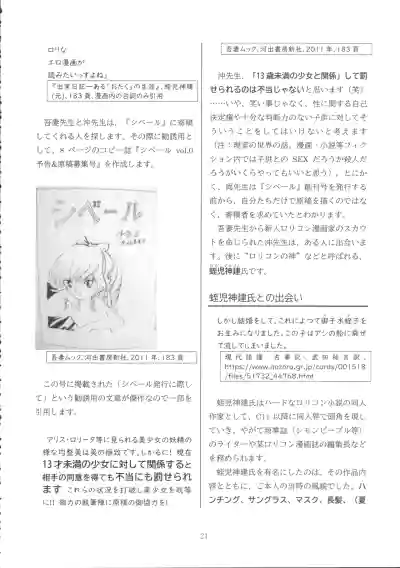 ロリな
エロ漫画が
読みたいっすよね」
『出家日記―ある「おたく」の生涯』、蛭児神建
(元)、183頁、漫画内の台詞のみ引用
吾妻先生と沖先生は、『シベール』に寄稿
してくれる人を探します。その際に勧誘用と
して、8ページのコピー誌『シベール vol.0
予告&原稿募集号』を作成します。
シベール
吾妻ムック、河出書房新社、2011年、183頁
この号に掲載された「シベール発行に際し
て」という勧誘用の文章が優作なので一部を
引用します。
アリス・ロリータ等に見られる美少女の妖精の
様な均整美は美の極致です。しかるに! 現在
13才未満の少女に対して関係すると
相手の同意を得ても不当にも罰せられ
ます これらの状況を打破し美少女を我等
に!!
吾妻ムック、河出書房新社、2011年、183頁
沖先生、「13歳未満の少女と関係」して罰
せられるのは不当じゃないと思います(笑)
……いや、笑い事じゃなく、性に関する自己
決定権や十分な判断力のない子供に対してそ
ういうことをしてはいけないと考えます
(注:現実の世界の話。漫画・小説等フィク
ション内では子供との SEX だろうが殺人だ
ろうがいくらやってもいいと思う)。とにか
く、両先生は『シベール』創刊号を発行する
前から、自分たちだけで原稿を描くのではな
く、寄稿者を求めていたとわかります。
吾妻先生から新人ロリコン漫画家のスカウ
トを命じられた沖先生は、ある人に出会いま
す。後に“ロリコンの神”などと呼ばれる、
蛭児神建氏です。
蛭児神建氏との出会い
しかし結婚をして、これによつて御子水蛭子を
お生みになりました。この子はアシの船に乗せ
て流してしまいました。
現代語譯 古事記、武田祐吉訳、
https://www.aozora.gr.jp/cards/001518
/files/51732_44768.html
蛭児神建氏はハードなロリコン小説の同人
作家として、C11 以降に同人界で頭角を現して
いき、やがて商業誌(シモンピープル等)
のライターや某ロリコン漫画誌の編集長など
を務められます。
蛭児神建氏を有名にしたのは、その作品内
容とともに、ご本人の当時の風貌でした。ハ
ンチング、サングラス、マスク、長髪、(夏
21